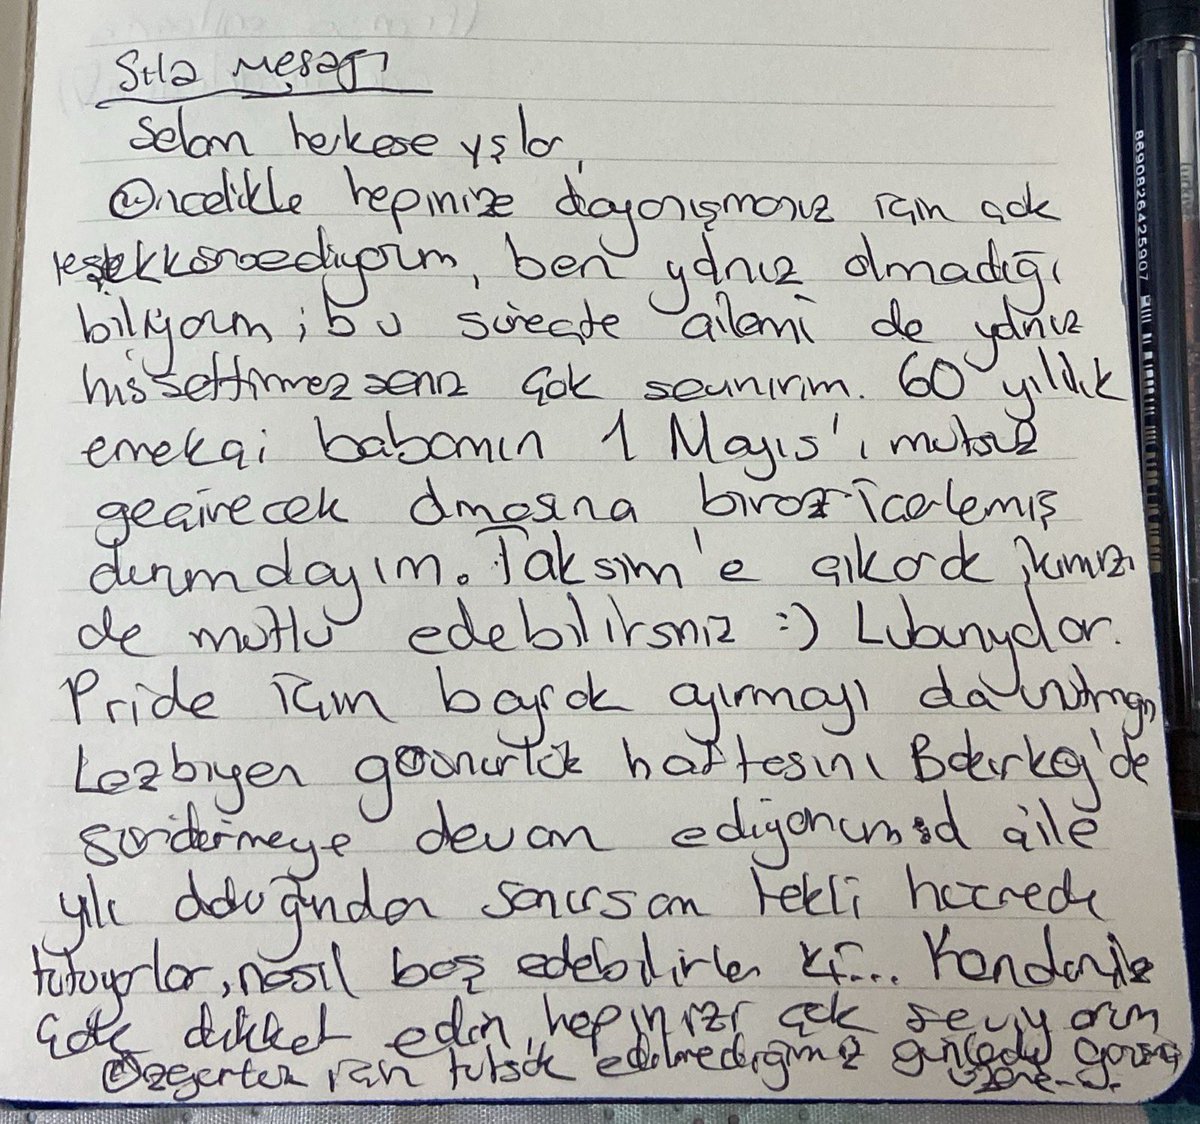 Sıla mesajı
Selam herkese yşlar,
Öncelikle hepinize dayanışmanız için çok
teşekkür ediyorum, ben yalnız olmadığı
biliyorum; bu süreçte ailemi de yalnız
hissettirmezseniz çok sevinirim. 60 yıllık
emekçi babamın 1 Mayıs'ı mutsuz
geçirecek olmasına biraz içerlemiş
durumdayım. Taksim'e çıkarak ikimizi
de mutlu edebilirsiniz :) Lubunyalar.
Pride için bayrak ayırmayı da unutmayın
Lezbiyen görünürlük haftasını Bakırköy'de
sürdürmeye devam ediyorum
aile
yılı olduğundan sanırsam tekli hücrede
tutuyorlar, nasıl baş edebilirler ki... Kendinize
çok dikkat edin, hepinizi çok seviyorum
Özgürlük için tutsak edilmediğimiz günlerde görüşmek
üzere
8690826425907